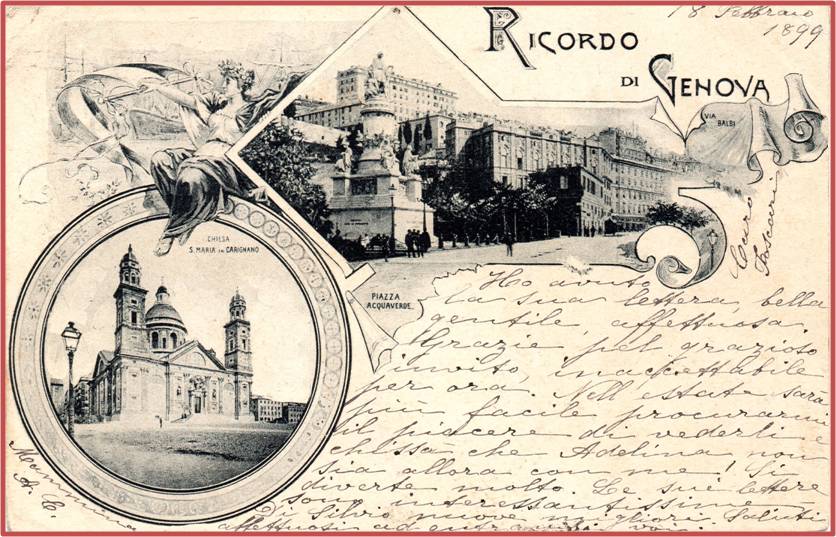 18 Febbraio
1899
RICORDO
DI GENOVA
VIA BALBI
CHIESA
S. MARIA IN CARIGNANO
PIAZZA
ACQUAVERDE
Caro
Ho avuto
la sua lettera, bella
gentile, affettuosa.
Grazie pel grazioso
invito, inaccettabile
per ora. Nell'estate sarà
più facile procurarmi
il piacere di vederli e
chissà che Adelina non
sia allora con me! Si
diverte molto. Le sue lettere
sono interessantissime.
Di Silvio nuove migliori. Saluti
affettuosi ad entrambi voi.
Mammina
A. C.